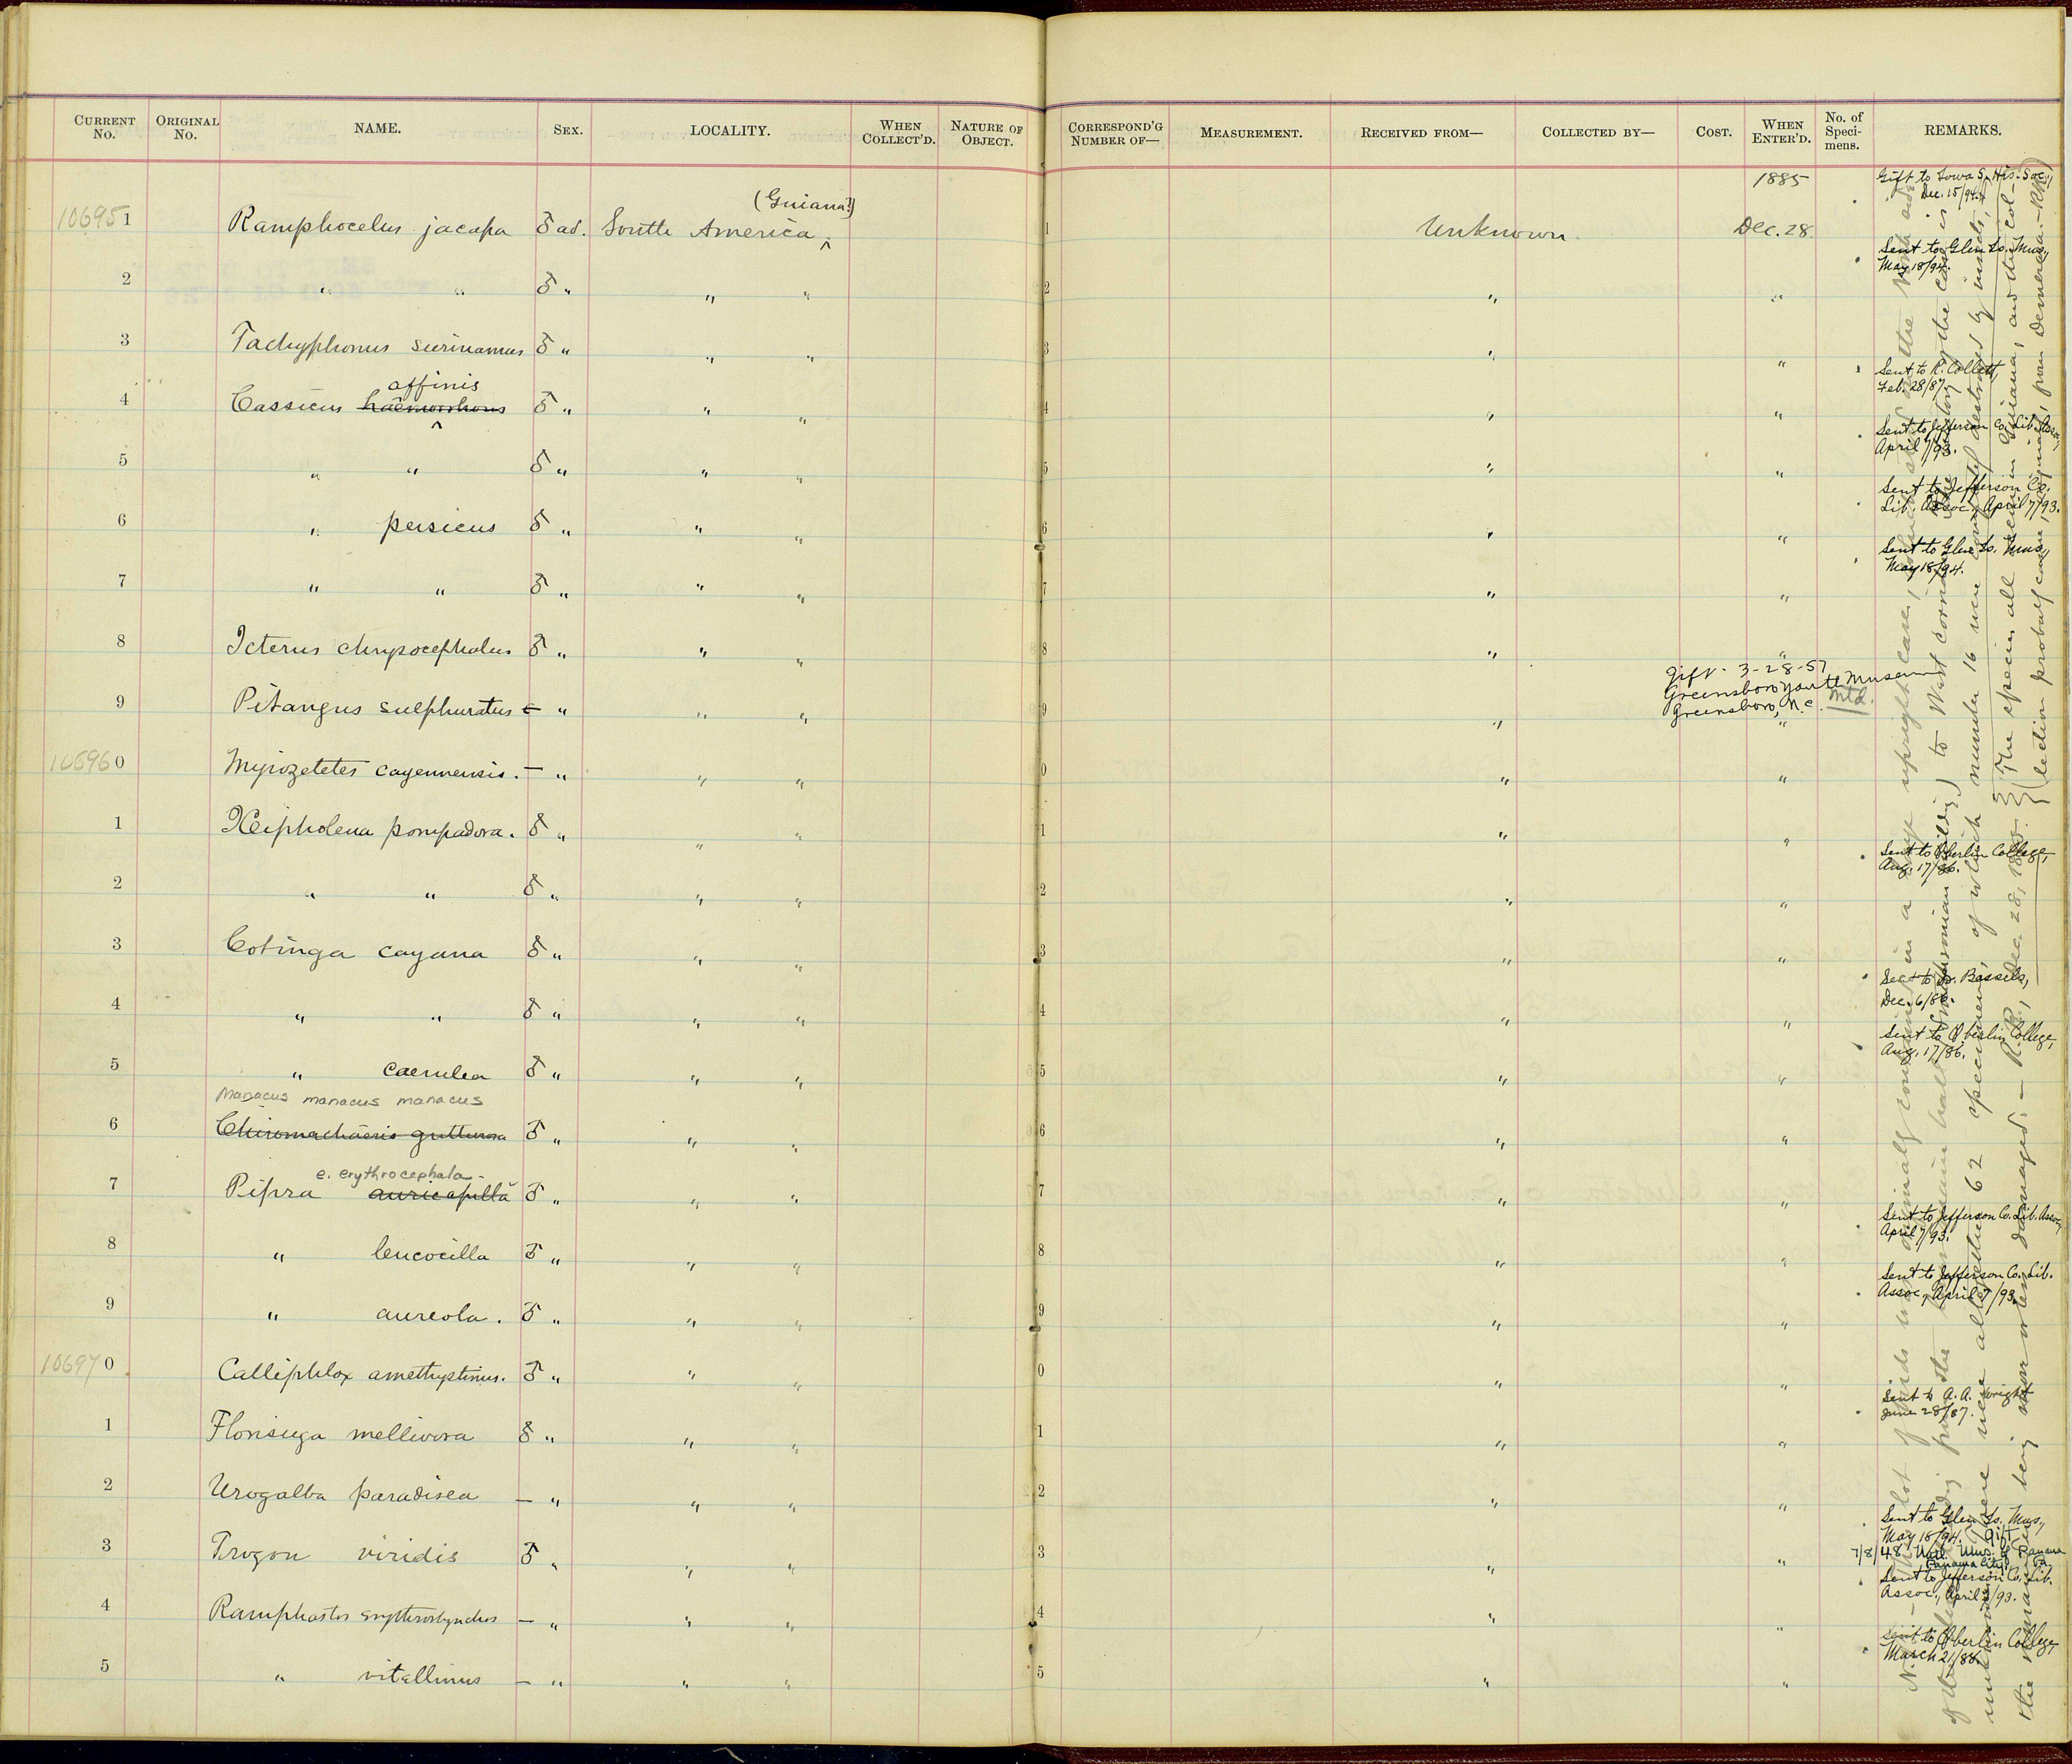 CURRENT No. ORIGINAL No. NAME. SEX. LOCALITY. WHEN COLLECT'D. NATURE OF OBJECT. CORRESPOND'G NUMBER OF— MEASUREMENT. RECEIVED FROM— COLLECTED BY— COST. WHEN ENTER'D. No. of Specimens. REMARKS.
1885 Gift to Iowa
Dec. 15/94.
(Guiana?)
106951 Ramphocelus jacapa ♂ ad. South America ^ 1 Unknown. Dec. 28.
Sent to Glen Is. Mus.,
May 18/94.
2 " " ♂ " " " 2 " "
3 Tachyphonus surinamus ♂ " " " 3 " "
Sent to R. Collett,
Feb. 28/87.
affinis
4 Cassicus haemorrhous ♂ " " " 4 " "
^
Sent to Jefferson Co. Lib. Assoc.,
April 7/93.
5 " " ♂ " " " 5 " "
Sent to Jefferson Co.
Lib. Assoc., April 7/93.
6 " persicus ♂ " " " 6 " "
Sent to Glen Is. Mus.,
May 18/94.
7 " " ♂ " " " 7 " "
8 Icterus chrysocephalus ♂ " " " 8 " "
Gift - 3-28-57
Greensboro Youth Museum
Greensboro, N.C. Mtd.
9 Pitangus sulphuratus — " " " 9 " "
106960 Myiozetetes cayennensis. — " " " 0 " "
1 Xipholena pompadora. ♂ " " " 1 " "
Sent to Oberlin College,
Aug. 17/86.
2 " " ♂ " " " 2 " "
3 Cotinga cayana ♂ " " " 3 " "
Sent to Dr. Bessels,
Dec. 6/86.
4 " " ♂ " " " 4 " "
Sent to Oberlin College,
Aug. 17/86.
5 " caerulea ♂ " " " 5 " "
Manacus manacus manacus
6 Chiromachaeris gutturosa ♂ " " " 6 " "
e. erythrocephala
7 Pipra auricapilla ♂ " " " 7 " "
Sent to Jefferson Co. Lib. Assoc.,
April 7/93.
8 " leucocilla ♂ " " " 8 " "
Sent to Jefferson Co. Lib.
Assoc., April 7/93.
9 " aureola. ♂ " " " 9 " "
106970 Calliphlox amethystinus. ♂ " " " 0 " "
Sent to A. A. Wright
June 28/87.
1 Florisuga mellivora ♂ " " " 1 " "
2 Urogalba paradisea — " " " 2 " "
Sent to Glen Is. Mus.,
May 18/94. Gift
3 Trogon viridis ♂ " " " 3 " "
7/8/48 Natl. Mus. of Panama
Panama City, Pa.
Sent to Jefferson Co. Lib.
Assoc., April 7/93.
4 Ramphastos erythrorhynchos — " " " 4 " "
Sent to Oberlin College,
March 21/88.
5 " vitellinus — " " " 5 " "
of which number 16 were destroyed by insects,
the remainder being more or less damaged. — R.R., Dec. 28, 1885.
The specimens all occur in Guiana, and the collection probably came from Demerara. — R.R.